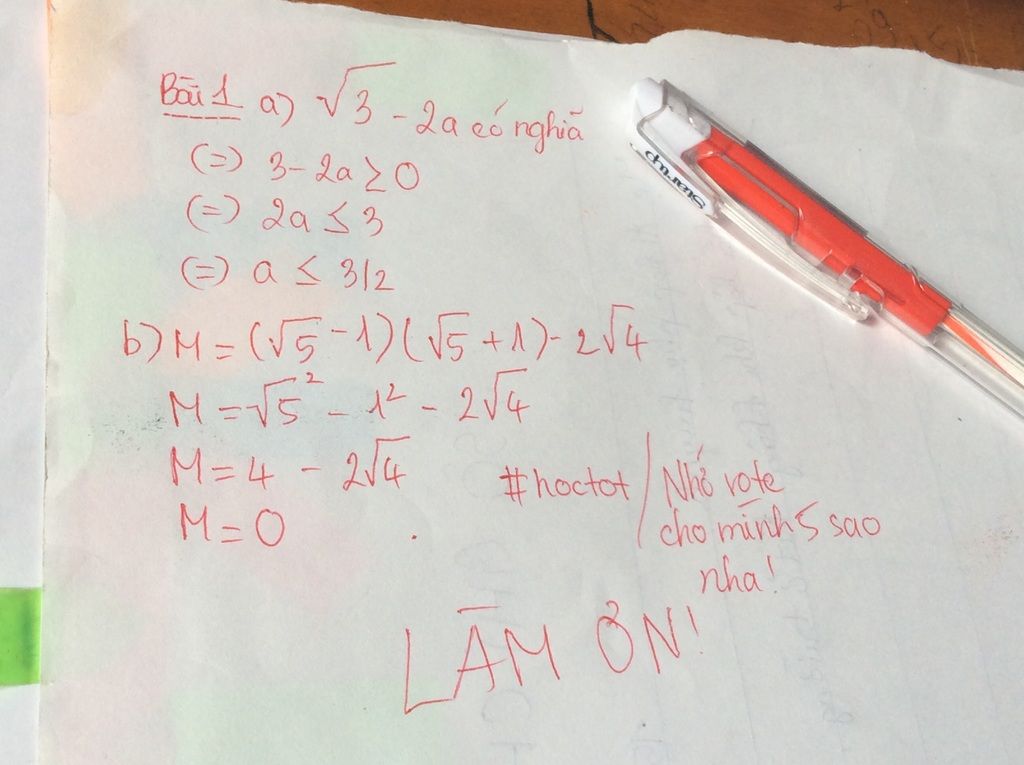 Bài 1 a) √3 - 2a có nghiã
(=) 3 - 2a ≥ 0
(=) 2a ≤ 3
(=) a ≤ 3/2
b) M = (√5 - 1)(√5 + 1) - 2√4
M = √5² - 1² - 2√4
M = 4 - 2√4
M = 0
#hoctot / Nhớ vote
cho mình 5 sao
nha!
LÀM ƠN!